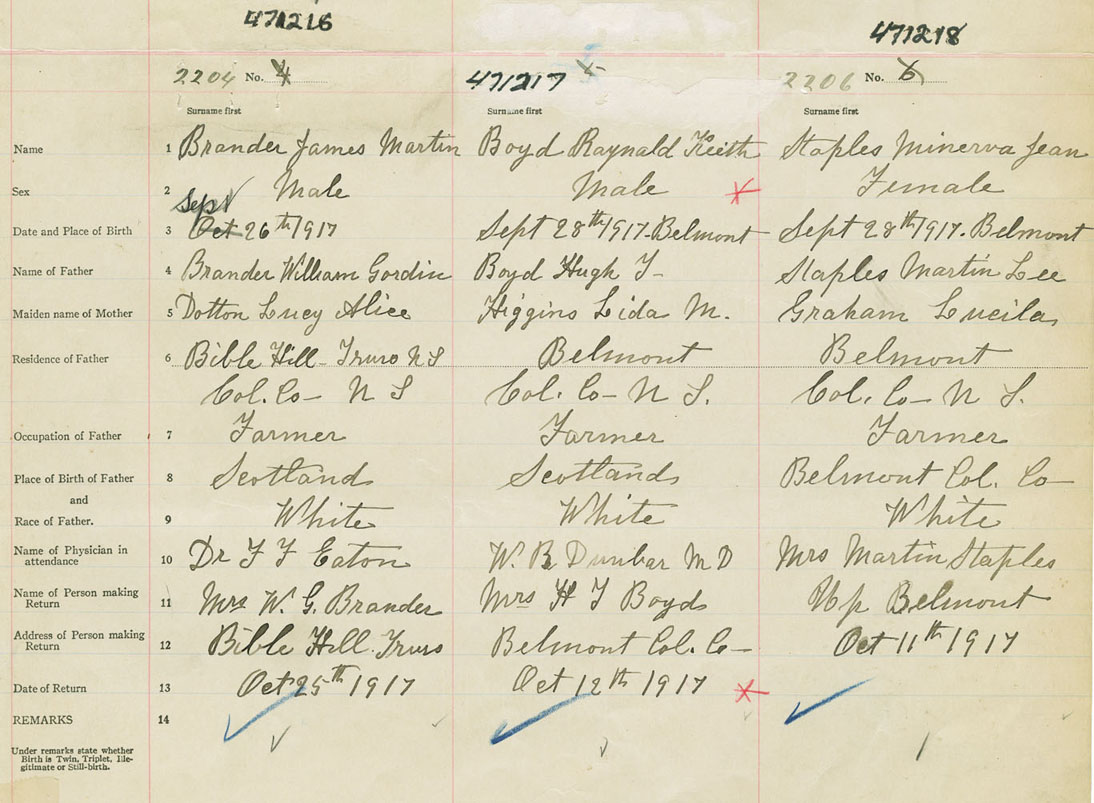 471216 471218
2204 No. 4 471217 5 2206 No. 6
Surname first Surname first Surname first
Name 1 Brander James Martin Boyd Raynald Keith Staples Minerva Jean
Sex 2 Male Male Female
Sept
Date and Place of Birth 3 Oct 26th 1917 Sept 28th 1917. Belmont Sept 28th 1917. Belmont
Name of Father 4 Brander William Gordin Boyd Hugh T- Staples Martin Lee
Maiden name of Mother 5 Dotton Lucy Alice Higgins Lida M. Graham Lucila
Residence of Father 6 Bible Hill - Truro N S Belmont Belmont
Col. Co - N S Col. Co - N S. Col. Co - N S.
Occupation of Father 7 Farmer Farmer Farmer
Place of Birth of Father 8 Scotland Scotland Belmont Col. Co -
and
Race of Father. 9 White White White
Name of Physician in
attendance 10 Dr F F Eaton W. B Dunbar M D Mrs Martin Staples
Name of Person making
Return 11 Mrs W. G. Brander Mrs H T Boyd Up Belmont
Address of Person making
Return 12 Bible Hill. Truro Belmont Col. Co - Oct 11th 1917
Date of Return 13 Oct 25th 1917 Oct 12th 1917
REMARKS 14
Under remarks state whether
Birth is Twin, Triplet, Ille-
gitimate or Still-birth.